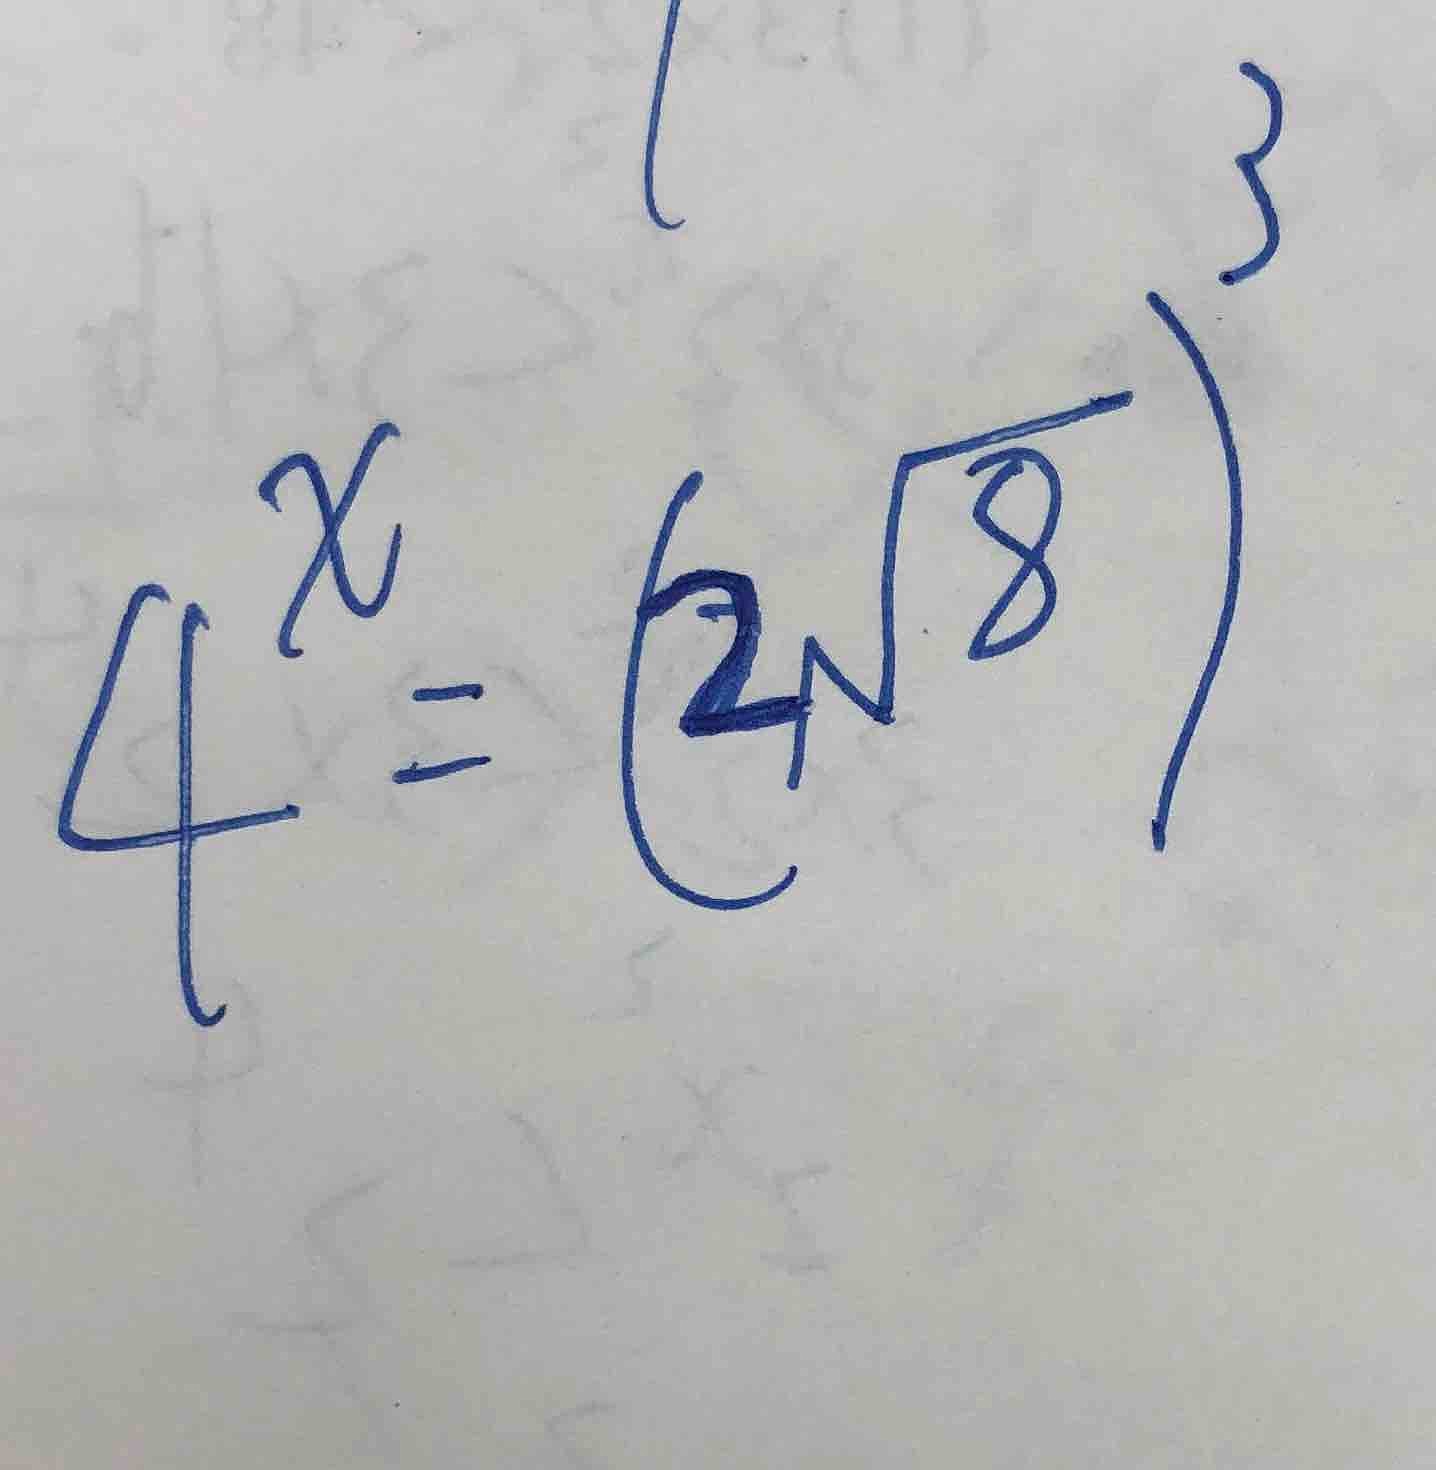 4^x = (2√8)^3